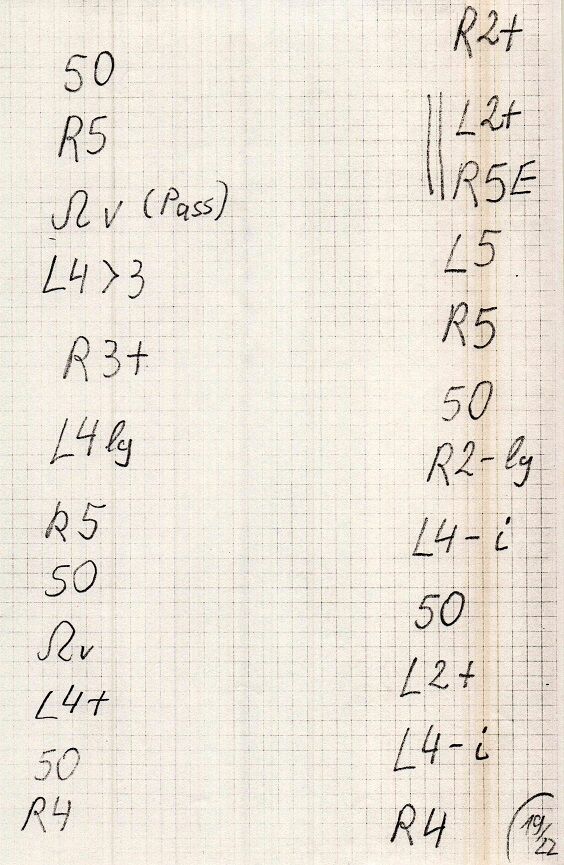 50
R5
Ω v (Pass)
L4 > 3
R3+
L4 lg
R5
50
Ω v
L4+
50
R4
R2+
L2+
R5E
L5
R5
50
R2- lg
L4-i
50
L2+
L4-i
R4
19/22